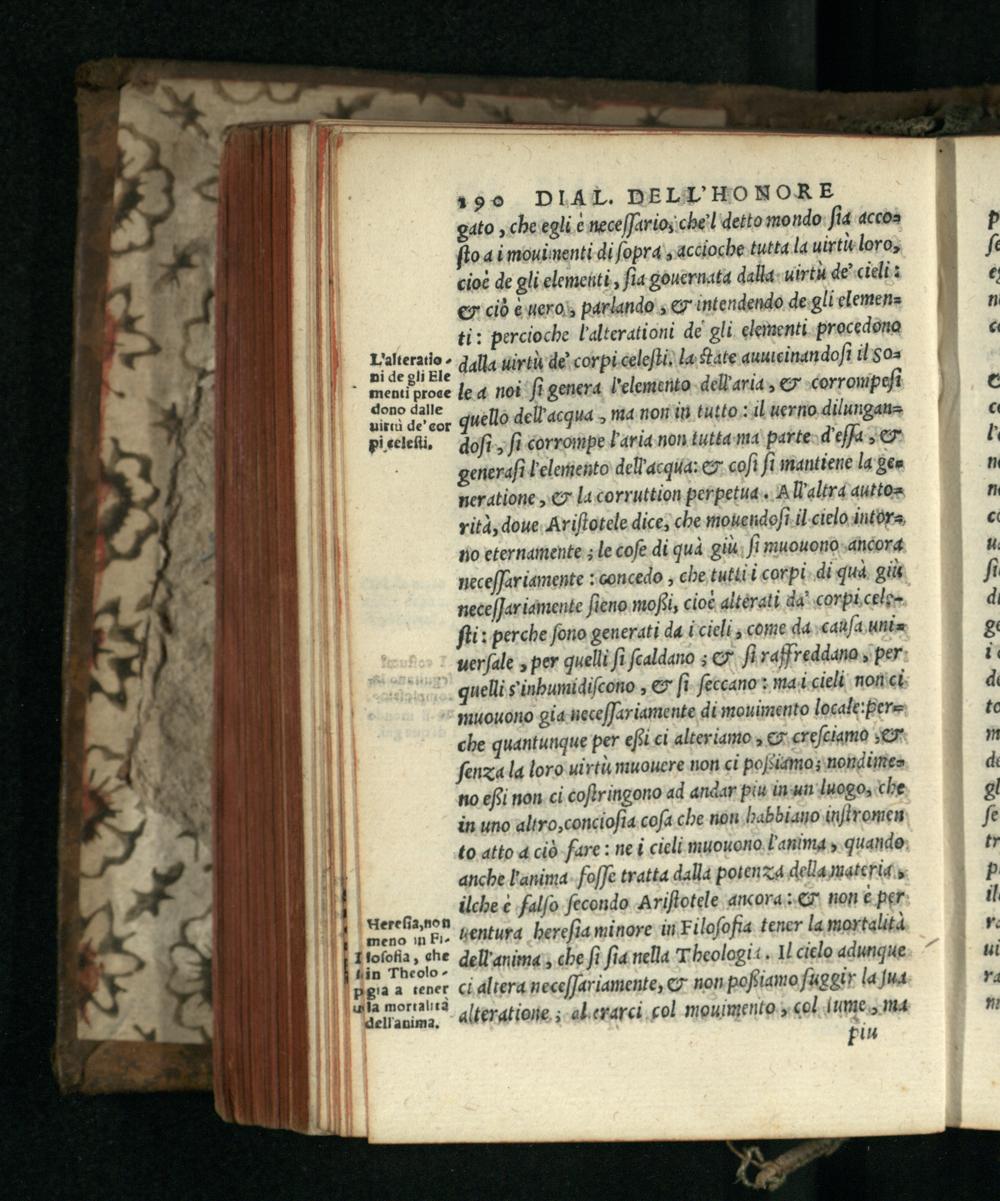 190 DIAL. DELL'HONORE
gato, che egli è neceſſario, che'l detto mondo ſia acco=
ſto a i mouimenti di ſopra, accioche tutta la uirtù loro,
cioè de gli elementi, ſia gouernata dalla uirtù de' cieli:
& ciò è uero, parlando, & intendendo de gli elemen=
ti: percioche l'alterationi de gli elementi procedono
dalla uirtù de' corpi celeſti. la ſtate auuicinandoſi il So=
le a noi ſi genera l'elemento dell'aria, & corrompeſi
quello dell'acqua, ma non in tutto: il uerno dilungan=
doſi, ſi corrompe l'aria non tutta ma parte d'eſſa, &
generaſi l'elemento dell'acqua: & coſi ſi mantiene la ge=
neratione, & la corruttion perpetua. All'altra autto=
rità, doue Ariſtotele dice, che mouendoſi il cielo intor=
no eternamente; le coſe di quà giù ſi muouono ancora
neceſſariamente: concedo, che tutti i corpi di quà giù
neceſſariamente ſieno moßi, cioè alterati da' corpi cele=
ſti: perche ſono generati da i cieli, come da cauſa uni=
uerſale, per quelli ſi ſcaldano; & ſi raffreddano, per
quelli s'inhumidiſcono, & ſi ſeccano: ma i cieli non ci
muouono gia neceſſariamente di mouimento locale: per=
che quantunque per eßi ci alteriamo, & creſciamo, &
ſenza la loro uirtù muouere non ci poßiamo; nondime=
no eßi non ci coſtringono ad andar piu in un luogo, che
in uno altro, concioſia coſa che non habbiano inſtromen
to atto a ciò fare: ne i cieli muouono l'anima, quando
anche l'anima foſſe tratta dalla potenza della materia,
ilche è falſo ſecondo Ariſtotele ancora: & non è per
uentura hereſia minore in Filoſofia tener la mortalità
dell'anima, che ſi ſia nella Theologia. Il cielo adunque
ci altera neceſſariamente, & non poßiamo fuggir la ſua
alteratione; alterarci col mouimento, col lume, ma
piu
L'alteratio-
ni de gli Ele
menti proce
dono dalle
uirtù de' cor
pi celeſti.
Hereſia, non
meno in Fi-
loſofia, che
in Theolo-
gia a tener
la mortalità
dell'anima.